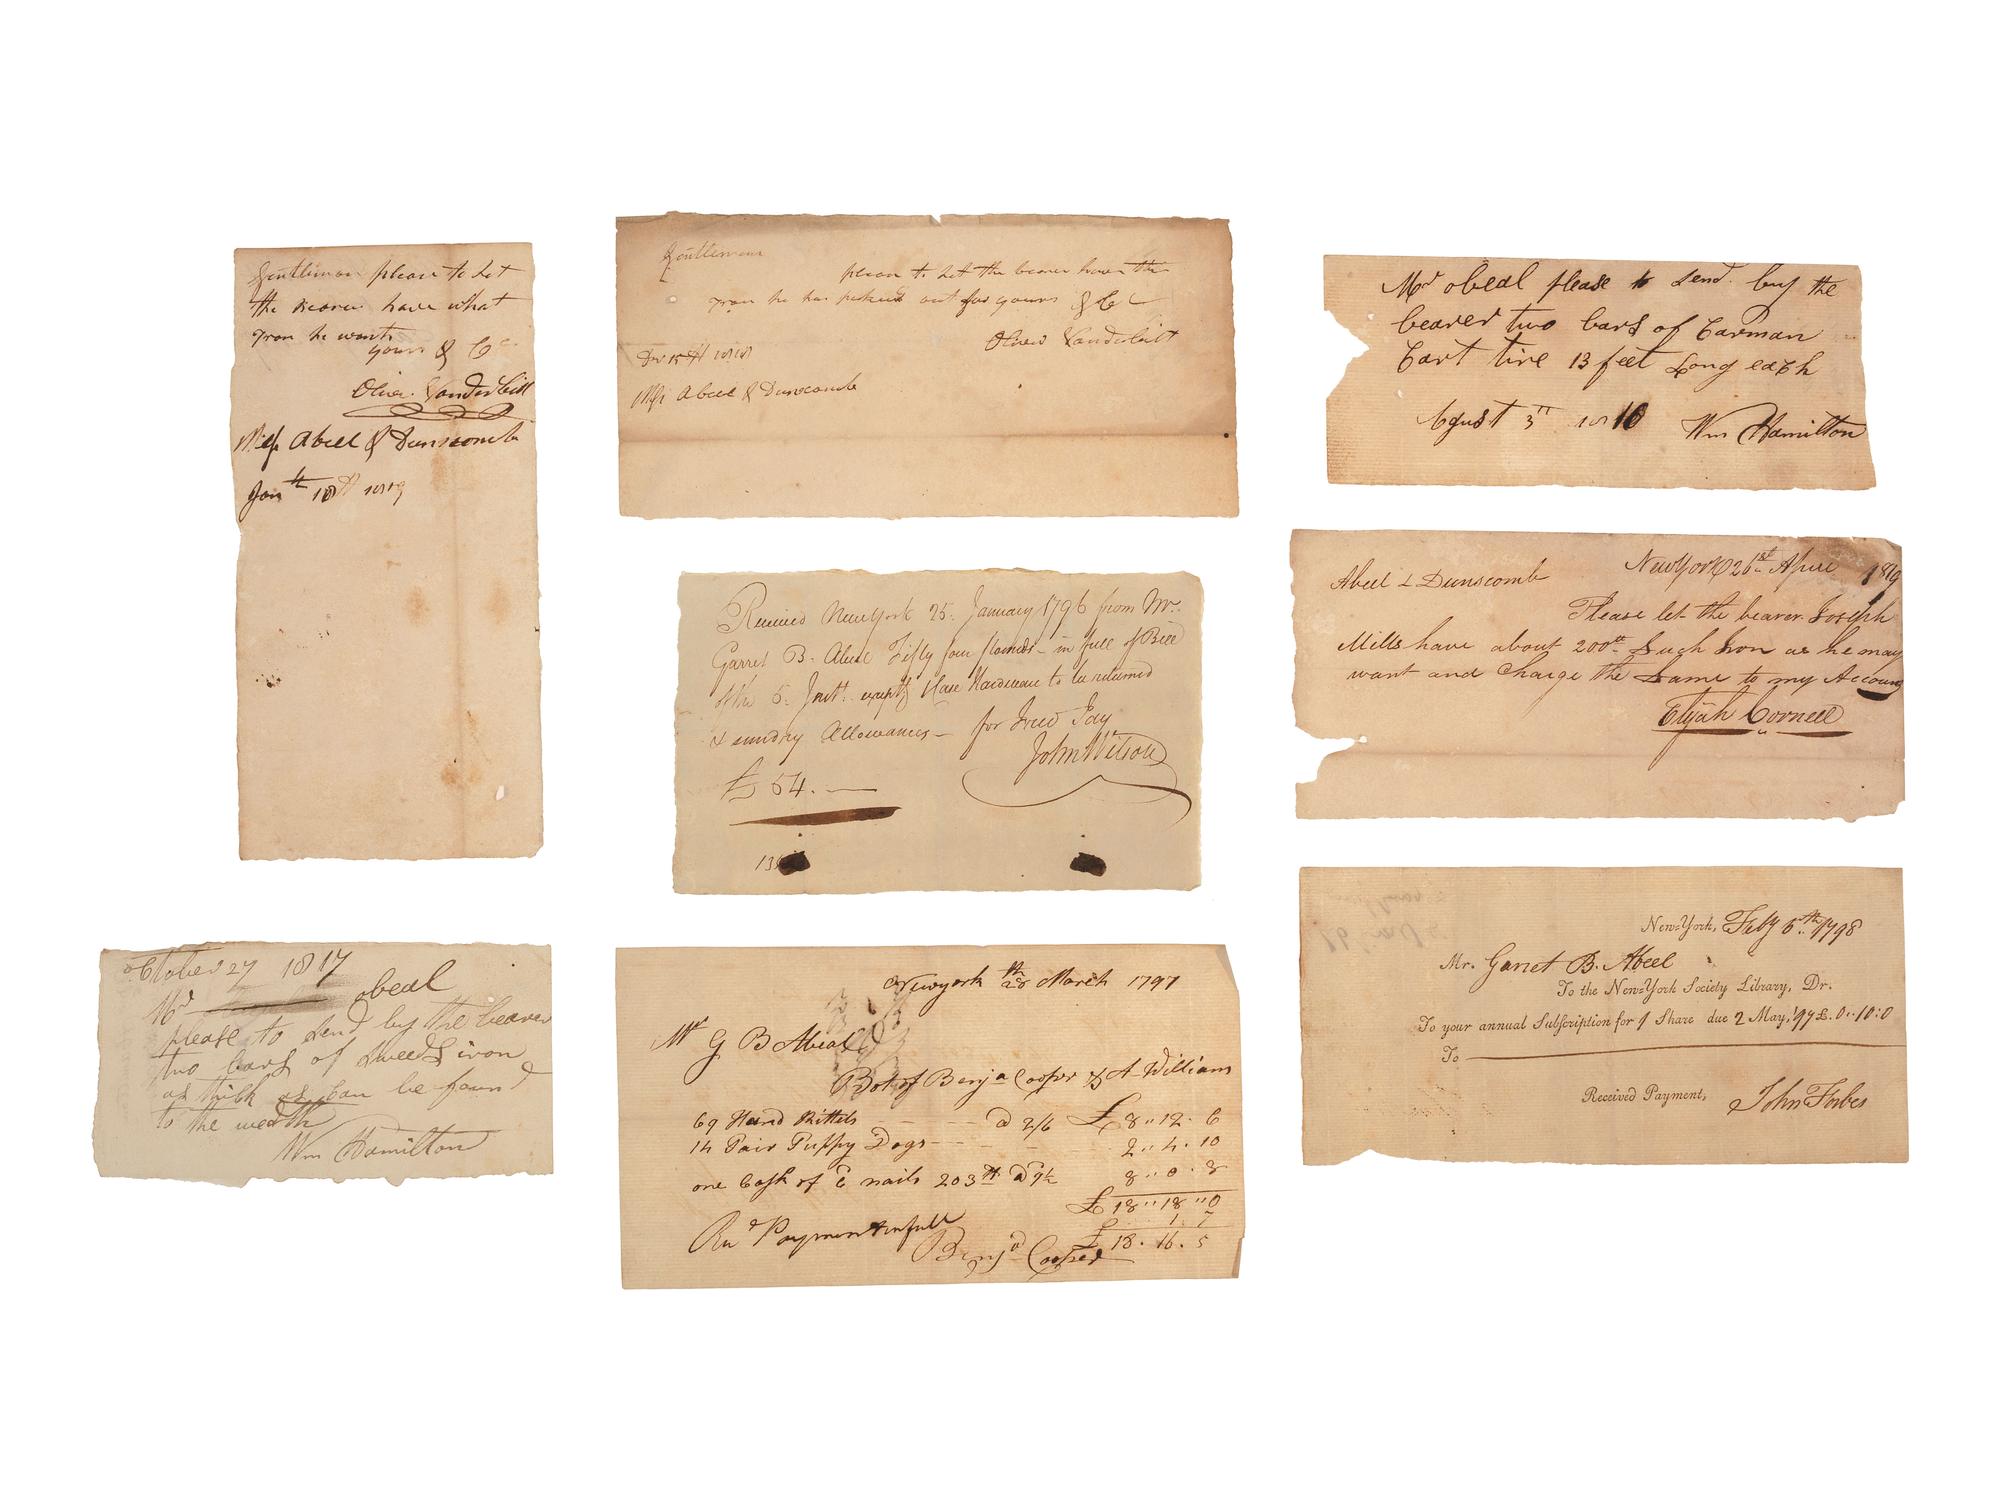 Gentleman please to Let
the bearer have what
yron he wants
yours & Cc
Oliver Vanderbilt
Mess Abeel & Dunscomb
Jan 18th 1819
Gentlemen
please to Let the bearer have the
yron he has picked out for yours &Cc
Oliver Vanderbilt
Dec 15th 1818
Mess Abeel & Dunscomb
Mr obeal please to Send by the
bearer two bars of Carman
Cart tire 13 feet Long each
Agust 3" 1810
Wm Hamilton
Received New York 25. January 1796 from Mr.
Garret B. Abeel Fifty four Pounds - in full of Bill
of the 5. Inst. except Hardware to be returned
& sundry Allowances - for Fred Jay
John Wilson
£ 54. —
Abeel & Dunscomb New York 26th April 1819
Please let the bearer Joseph
Mills have about 200lb Such Iron as he may
want and Charge the Same to my Account
Elijah Cornell
October 27 1817
Mr obeal
please to Send by the bearer
two bars of Sweeds iron
as thick as Can be found
to the wedth
Wm Hamilton
Newyork 28th March 1797
Mr G B Abeal
Bot of Benja Cooper & A Williams
69 Hand Kittels - - - @ 2/6 £8"12.6
14 Pair Puppy Dogs - - - 2"4.10
one Cask of nails 203lb @ 9½ 8"0.8
£18"18"0
1.7
£18.16.5
Recd Payment in full
Benja Cooper
New-York, Feby 5th. 1798
Mr. Garret B. Abeel
To the New-York Society Library, Dr.
To your annual Subscription for 1 Share due 2 May, '97 £.0..10:0
To
Received Payment, John Forbes